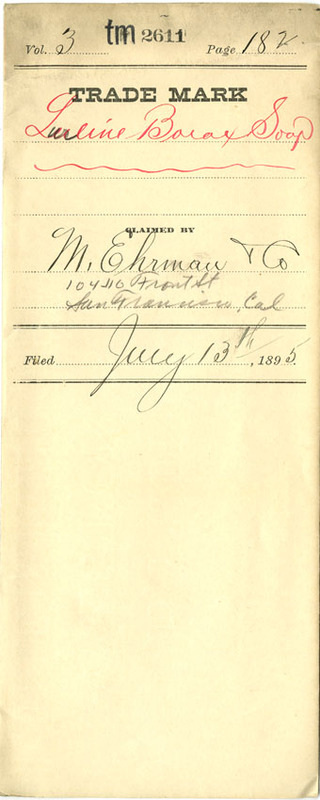 Vol. 3 tm 2611 Page 182
TRADE MARK
Lurline Borax Soap
CLAIMED BY
M. Ehrman & Co
104-110 Front St
San Francisco, Cal
Filed July 13th, 1895